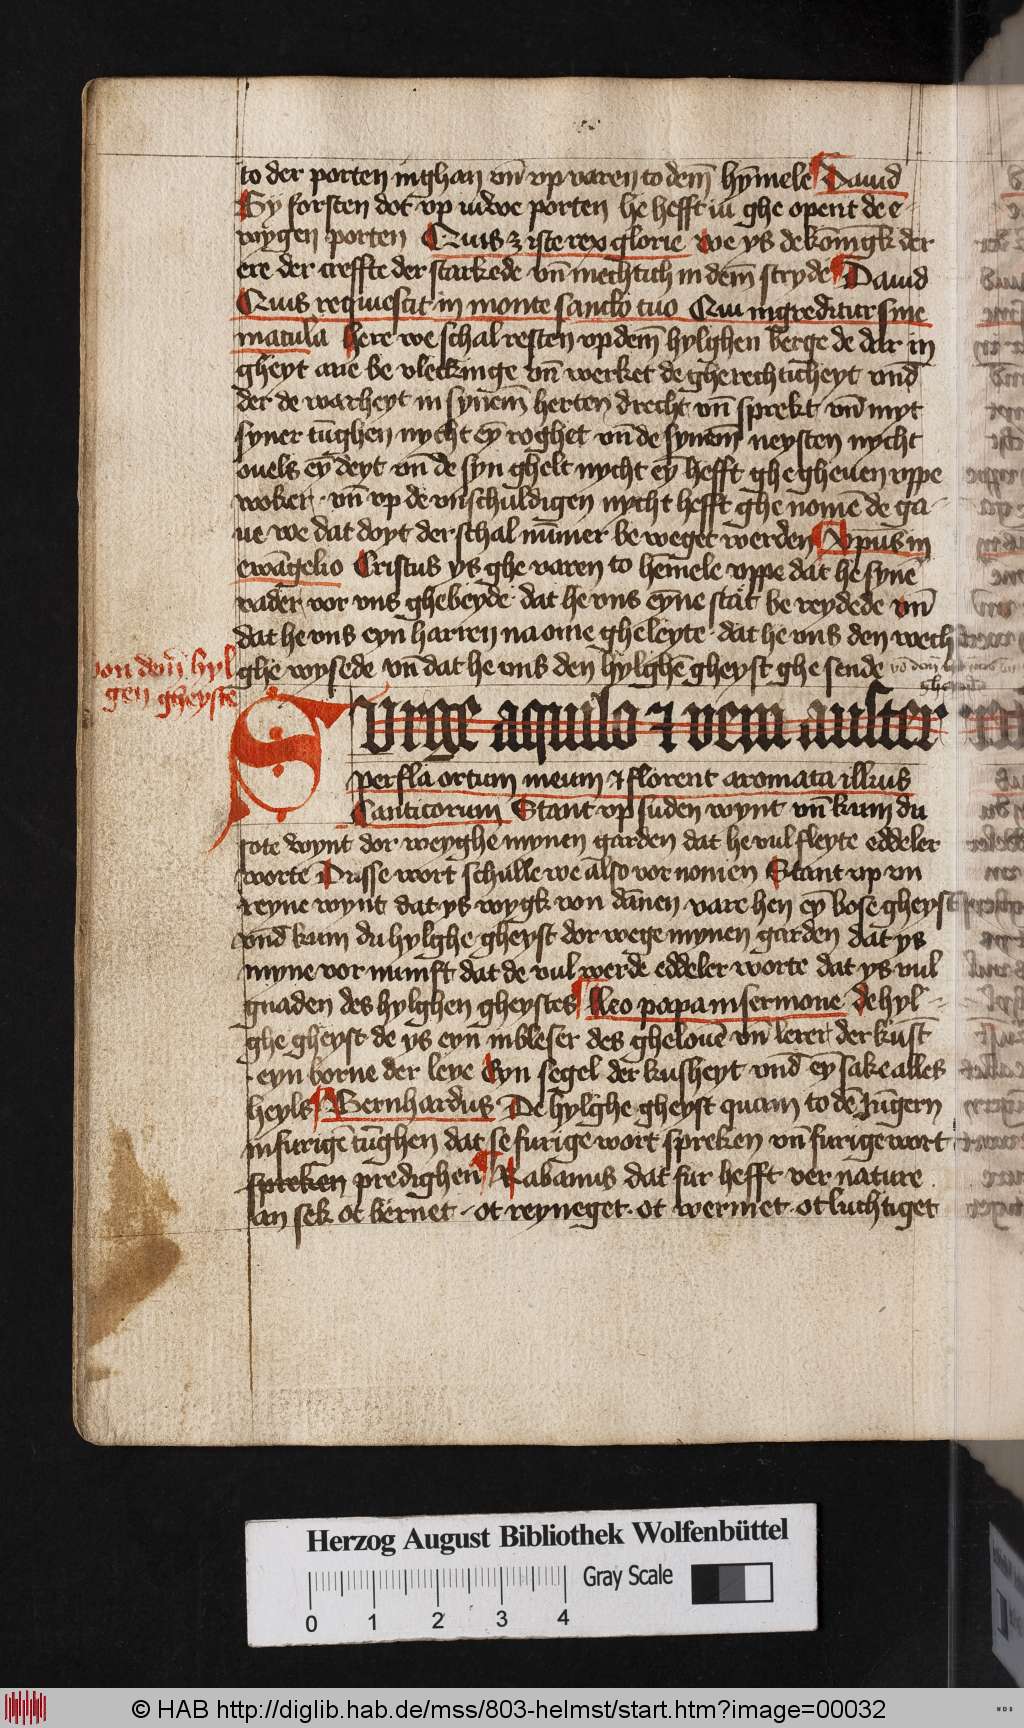 to der porten inghan vn̄ vp varen to dem̄ hȳmele Dauid
Gy forsten dot vp iuwe porten he hefft iu ghe opent de e-
wygen porten Quis ꝫ iste rex glorie we ys de kōnigk der
ere der creffte der starkede vn̄ mechtich in dem̄ stryde Dauid
Quis requiescit in monte sancto tuo Qui ingreditur sine
macula here we schal resten vp dem̄ hylghen berge de dar in
gheyt ane be vleckinge vn̄ werket de gherechticheyt vnd
der de warheyt in synem̄ herten drecht vn̄ sprekt vn̄ myt
syner tūghen nycht eȳ roghet vn̄ de synem̄ neysten nycht
ouels eȳ deyt vn̄ de syn ghelt nycht eȳ hefft ghe gheuen vppe
woker · vn̄ vp de vnschuldigen nycht hefft ghe nomē de ga-
ue we dat doyt der schal nūmer be weget werden Apūs in
ewāgelio Cristus ys ghe varen to hēmele vppe dat he synē
vader vor vns ghebeyde · dat he vns eyne stat be reydede vn̄
dat he vns eyn harren na ome gheleyte · dat he vns den wech
ghe wysede vn̄ dat he vns den hylghē gheyst ghe sende
von dem̄ hyl
gen gheyste
Surge aquilo ⁊ veni auster
perfla ortum meum ⁊ florent aromata illius
Canticorum Stant vp suden wynt vn̄ kum du
sote wynt dor weyghe mynen garden dat he vul fleyte eddeler
worte Dusse wort schulle we also vor nomen Stant vp vn
reyne wynt dat ys wygk von dānen vare hen eȳ bose gheyst
vnd kum du hylghe gheyst dor wege mynen garden dat ys
myne vor nunft dat de vul werde eddeler worte dat ys vul
gnaden des hylghen gheystes Leo papa in sermone de hyl-
ghe gheyst de ys eyn inbleser des ghelouē vn̄ lerer der kust
· eyn borne der leue Eyn segel der kusheyt vnd eȳ sake alles
heyls Bernhardus De hylghe gheyst quam to dē Jūgern
in furigē tūghen dat se furige wort spreken vn̄ furige wort
spreken predighen Rabanus dat fur hefft ver nature
an sek ot bernet · ot reyneget · ot wermet · ot luchtiget
Herzog August Bibliothek Wolfenbüttel
Gray Scale
0 1 2 3 4
© HAB http://diglib.hab.de/mss/803-helmst/start.htm?image=00032